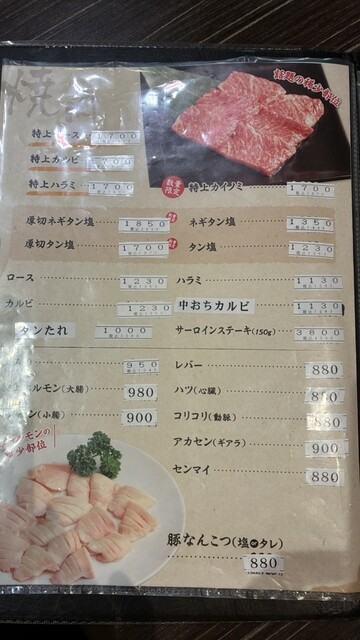 焼肉
話題の稀少部位
特上ロース 1700
特上カルビ 1700
特上ハラミ 1700
数量限定 特上カイノミ 1700
厚切ネギタン塩 1850
厚切タン塩 1700
ネギタン塩 1350
タン塩 1230
ロース 1230
カルビ 1230
タンたれ 1000
ハラミ 1130
中おちカルビ 1130
サーロインステーキ(150g) 3800
950
ホルモン(大腸) 980
(小腸) 900
レバー 880
ハツ(心臓) 880
コリコリ(動脈) 880
アカセン(ギアラ) 900
センマイ 880
モンの
少部位
豚なんこつ(塩orタレ)
880